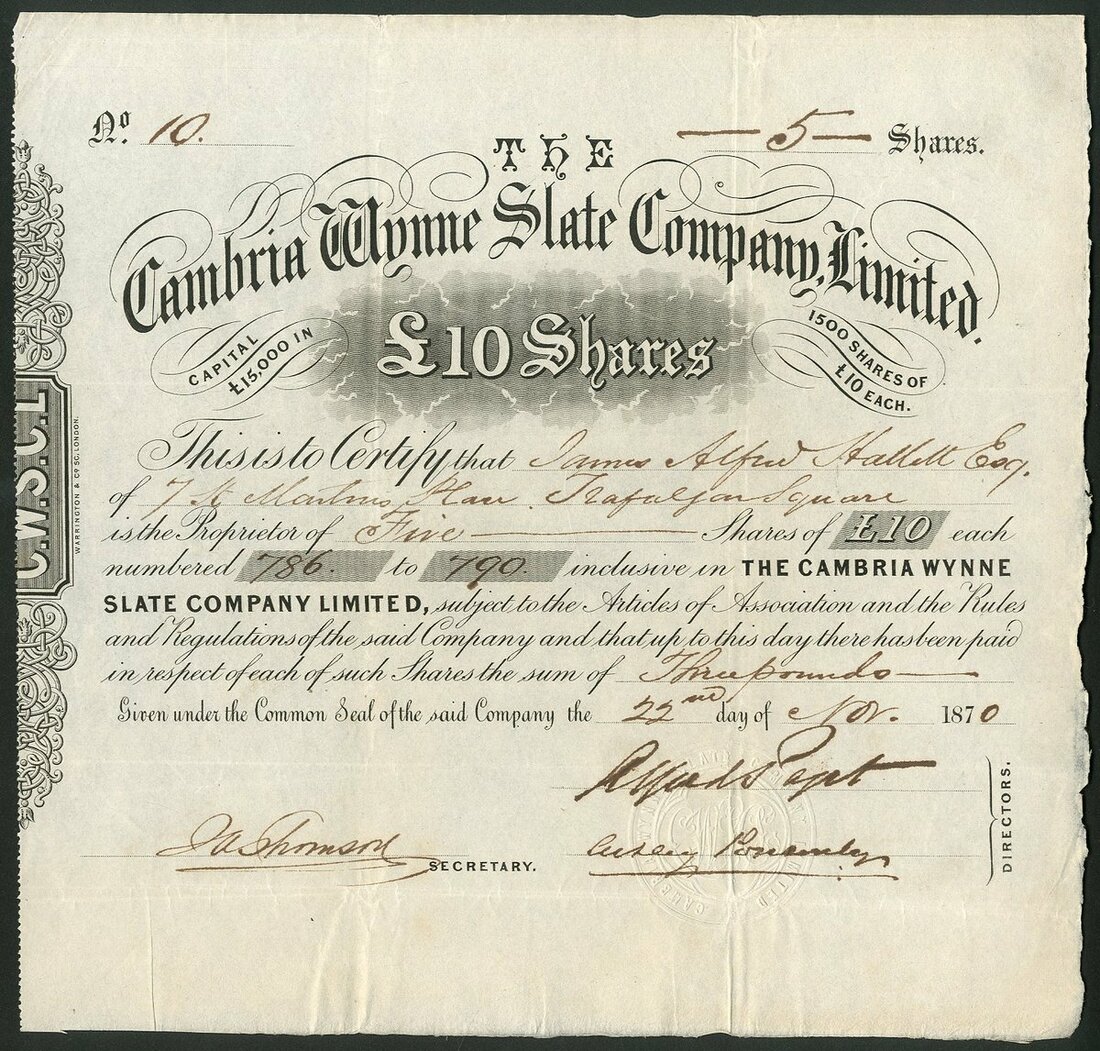 No. 10. — 5 — Shares.
THE
Cambria Wynne Slate Company, Limited.
CAPITAL £15,000 IN
1500 SHARES OF £10 EACH.
£10 Shares
This is to Certify that James Alfred Hallett Esq.
of 7 St Martins Place Trafalgar Square
is the Proprietor of Five — Shares of £10 each
numbered 786. to 790. inclusive in THE CAMBRIA WYNNE
SLATE COMPANY LIMITED, subject to the Articles of Association and the Rules
and Regulations of the said Company and that up to this day there has been paid
in respect of each of such Shares the sum of Three pounds —
Given under the Common Seal of the said Company the 22nd day of Nov. 1870
J A Thomson
SECRETARY.
DIRECTORS.
C.W.S.C.L
WARRINGTON & Co. SC. LONDON.